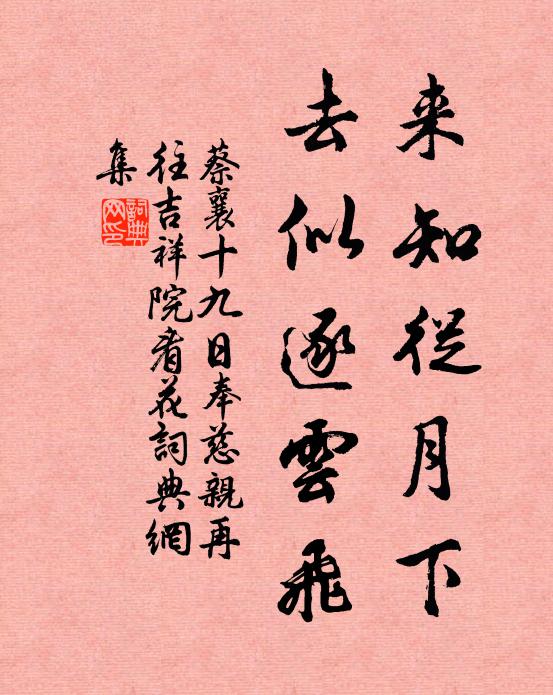 来知從月下
去似逐雲飛
蔡襄十九日奉慈親再
往吉祥院看花詞典網
集
詞典
网印